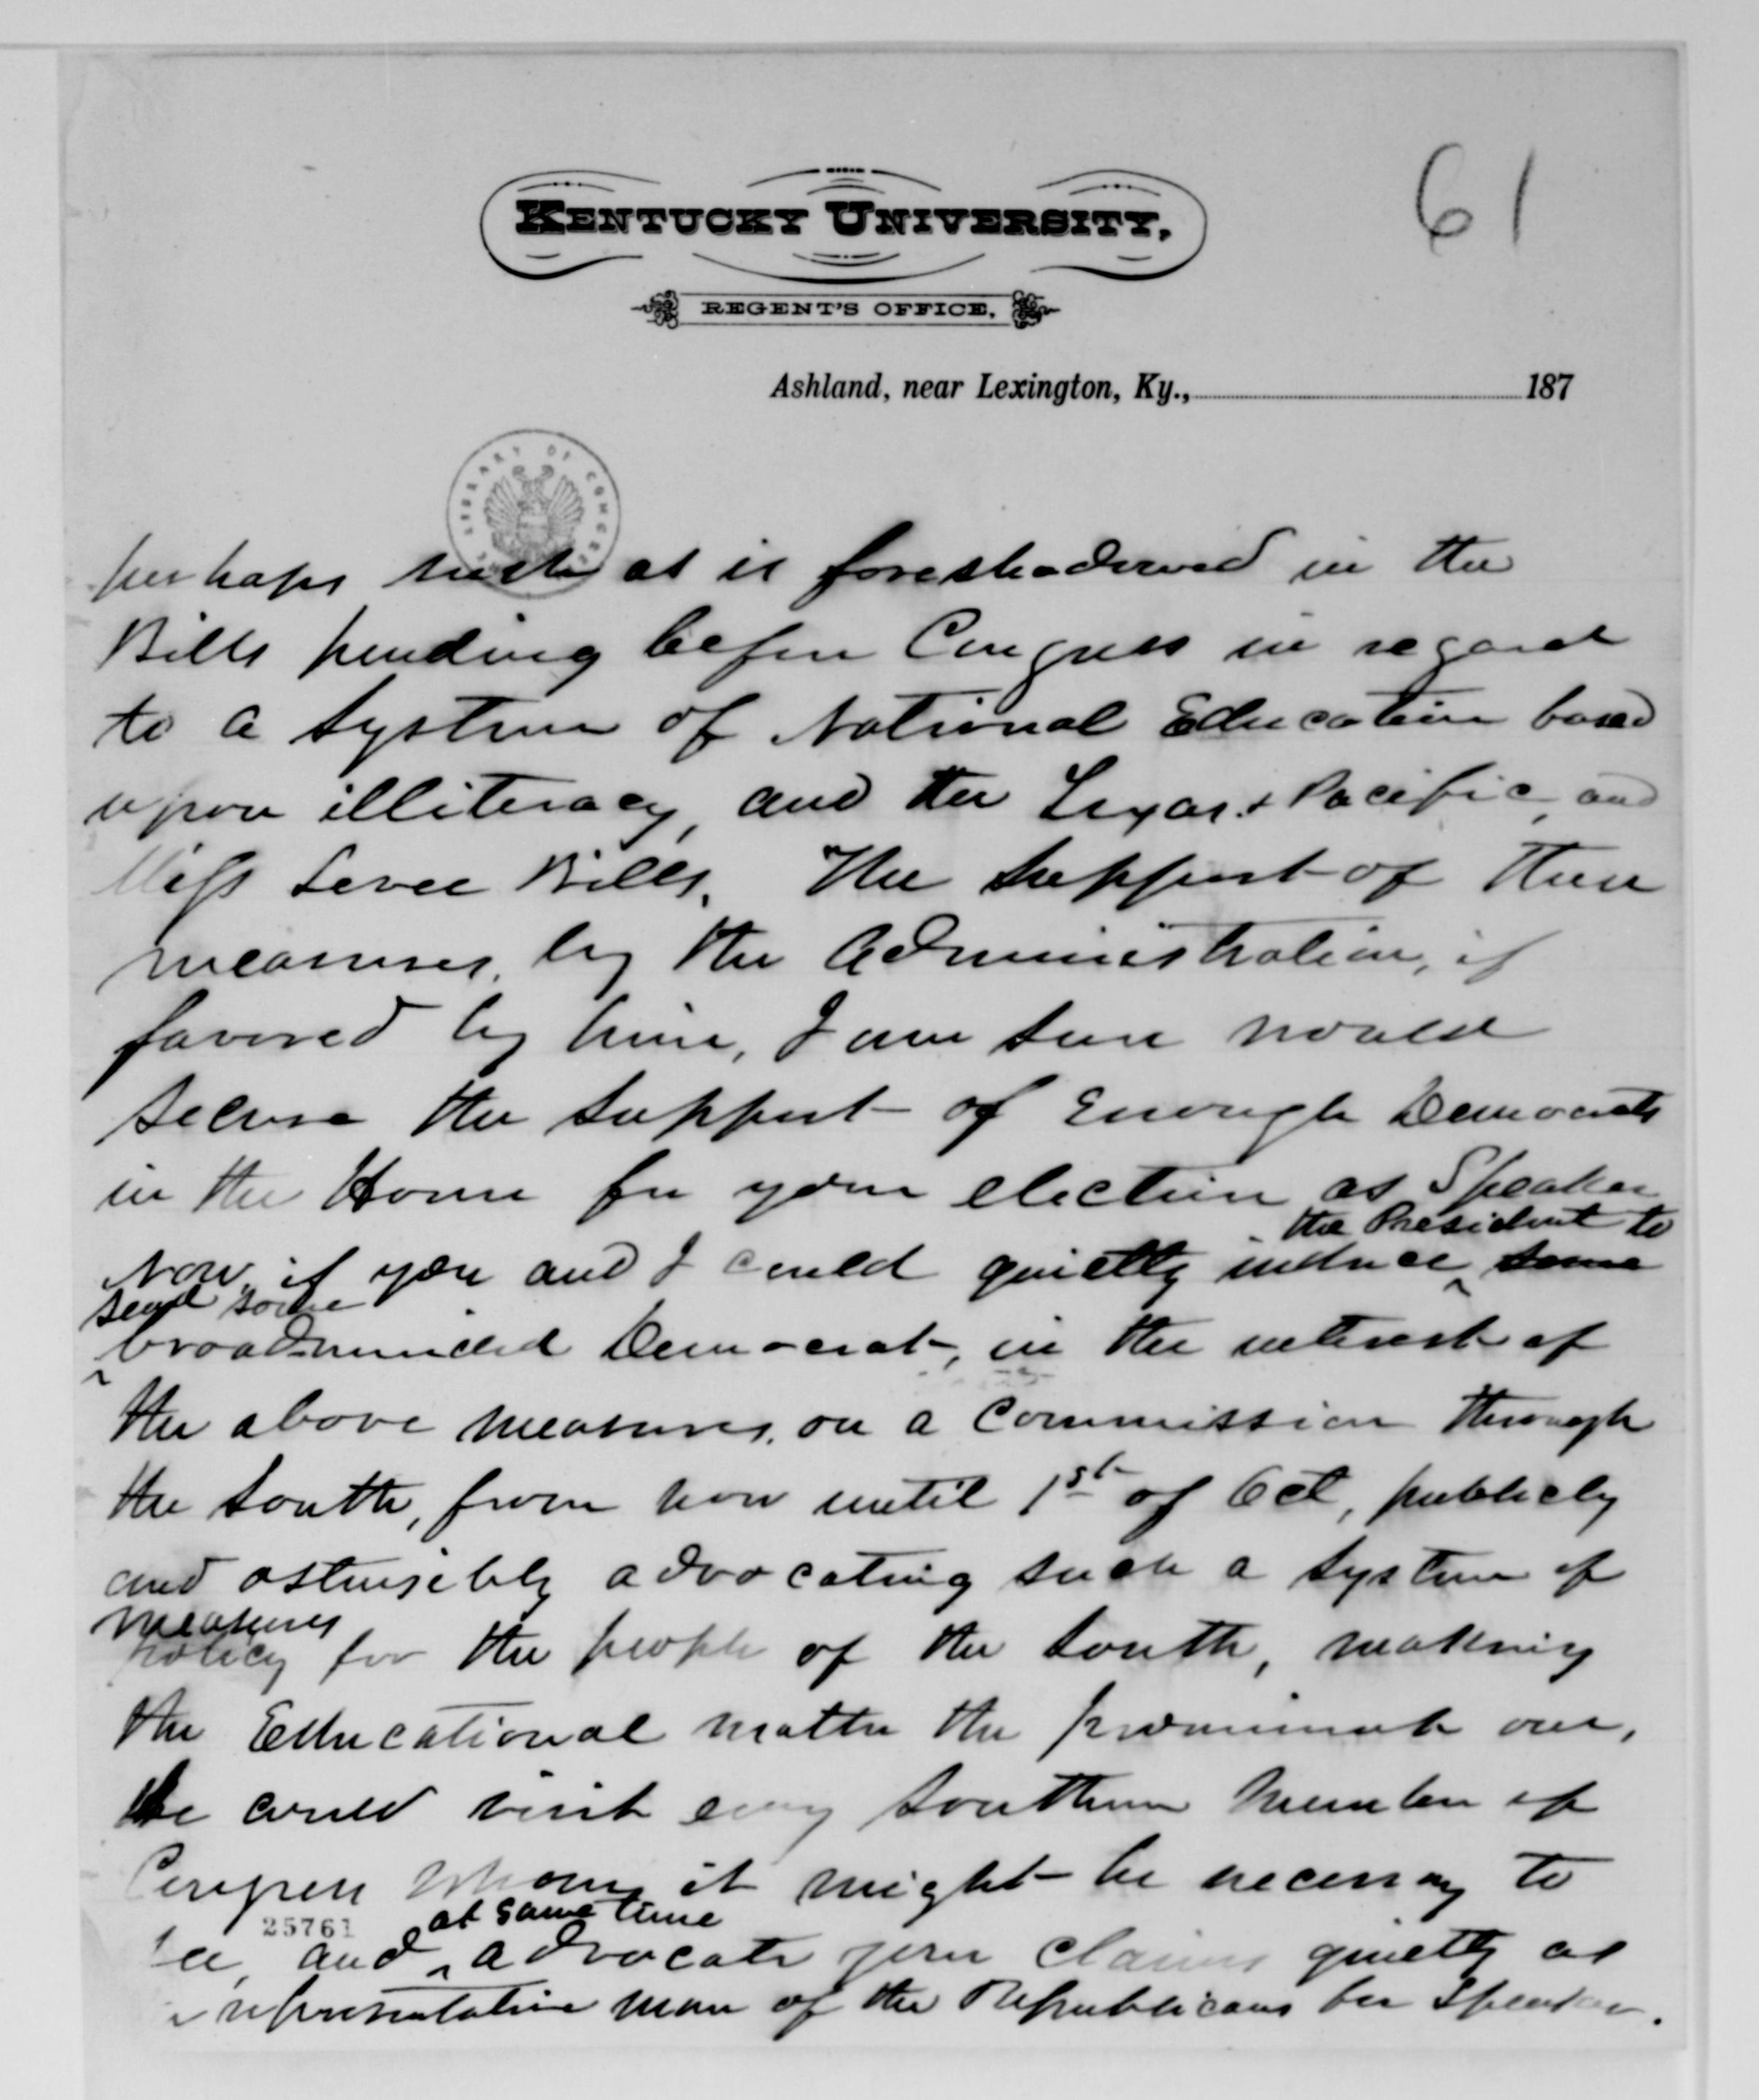 61
KENTUCKY UNIVERSITY,
REGENT'S OFFICE,
Ashland, near Lexington, Ky., 187
LIBRARY OF CONGRESS
perhaps such as is foreshadowed in the
Bills pending before Congress in regard
to a system of National Education based
upon illiteracy, and the Texas & Pacific, and
Miss Levee Bills. The support of these
measures, by the Administration, if
favored by him, I am sure would
secure the support of enough Democrats
in the House for your election as Speaker
the President to
Now, if you and I could quietly induce ^ some
send some
broadminded Democrat, in the interest of
the above measures, on a Commission through
the South, from now until 1st of Oct, publicly
and ostensibly advocating such a system of
measures
policy for the people of the South, making
the Educational matter the prominent one,
He could visit every Southern Member of
Congress whom it might be necessary to
at same time
see, and ^ advocate your claims quietly as
25761
representative man of the Republicans for Speaker.